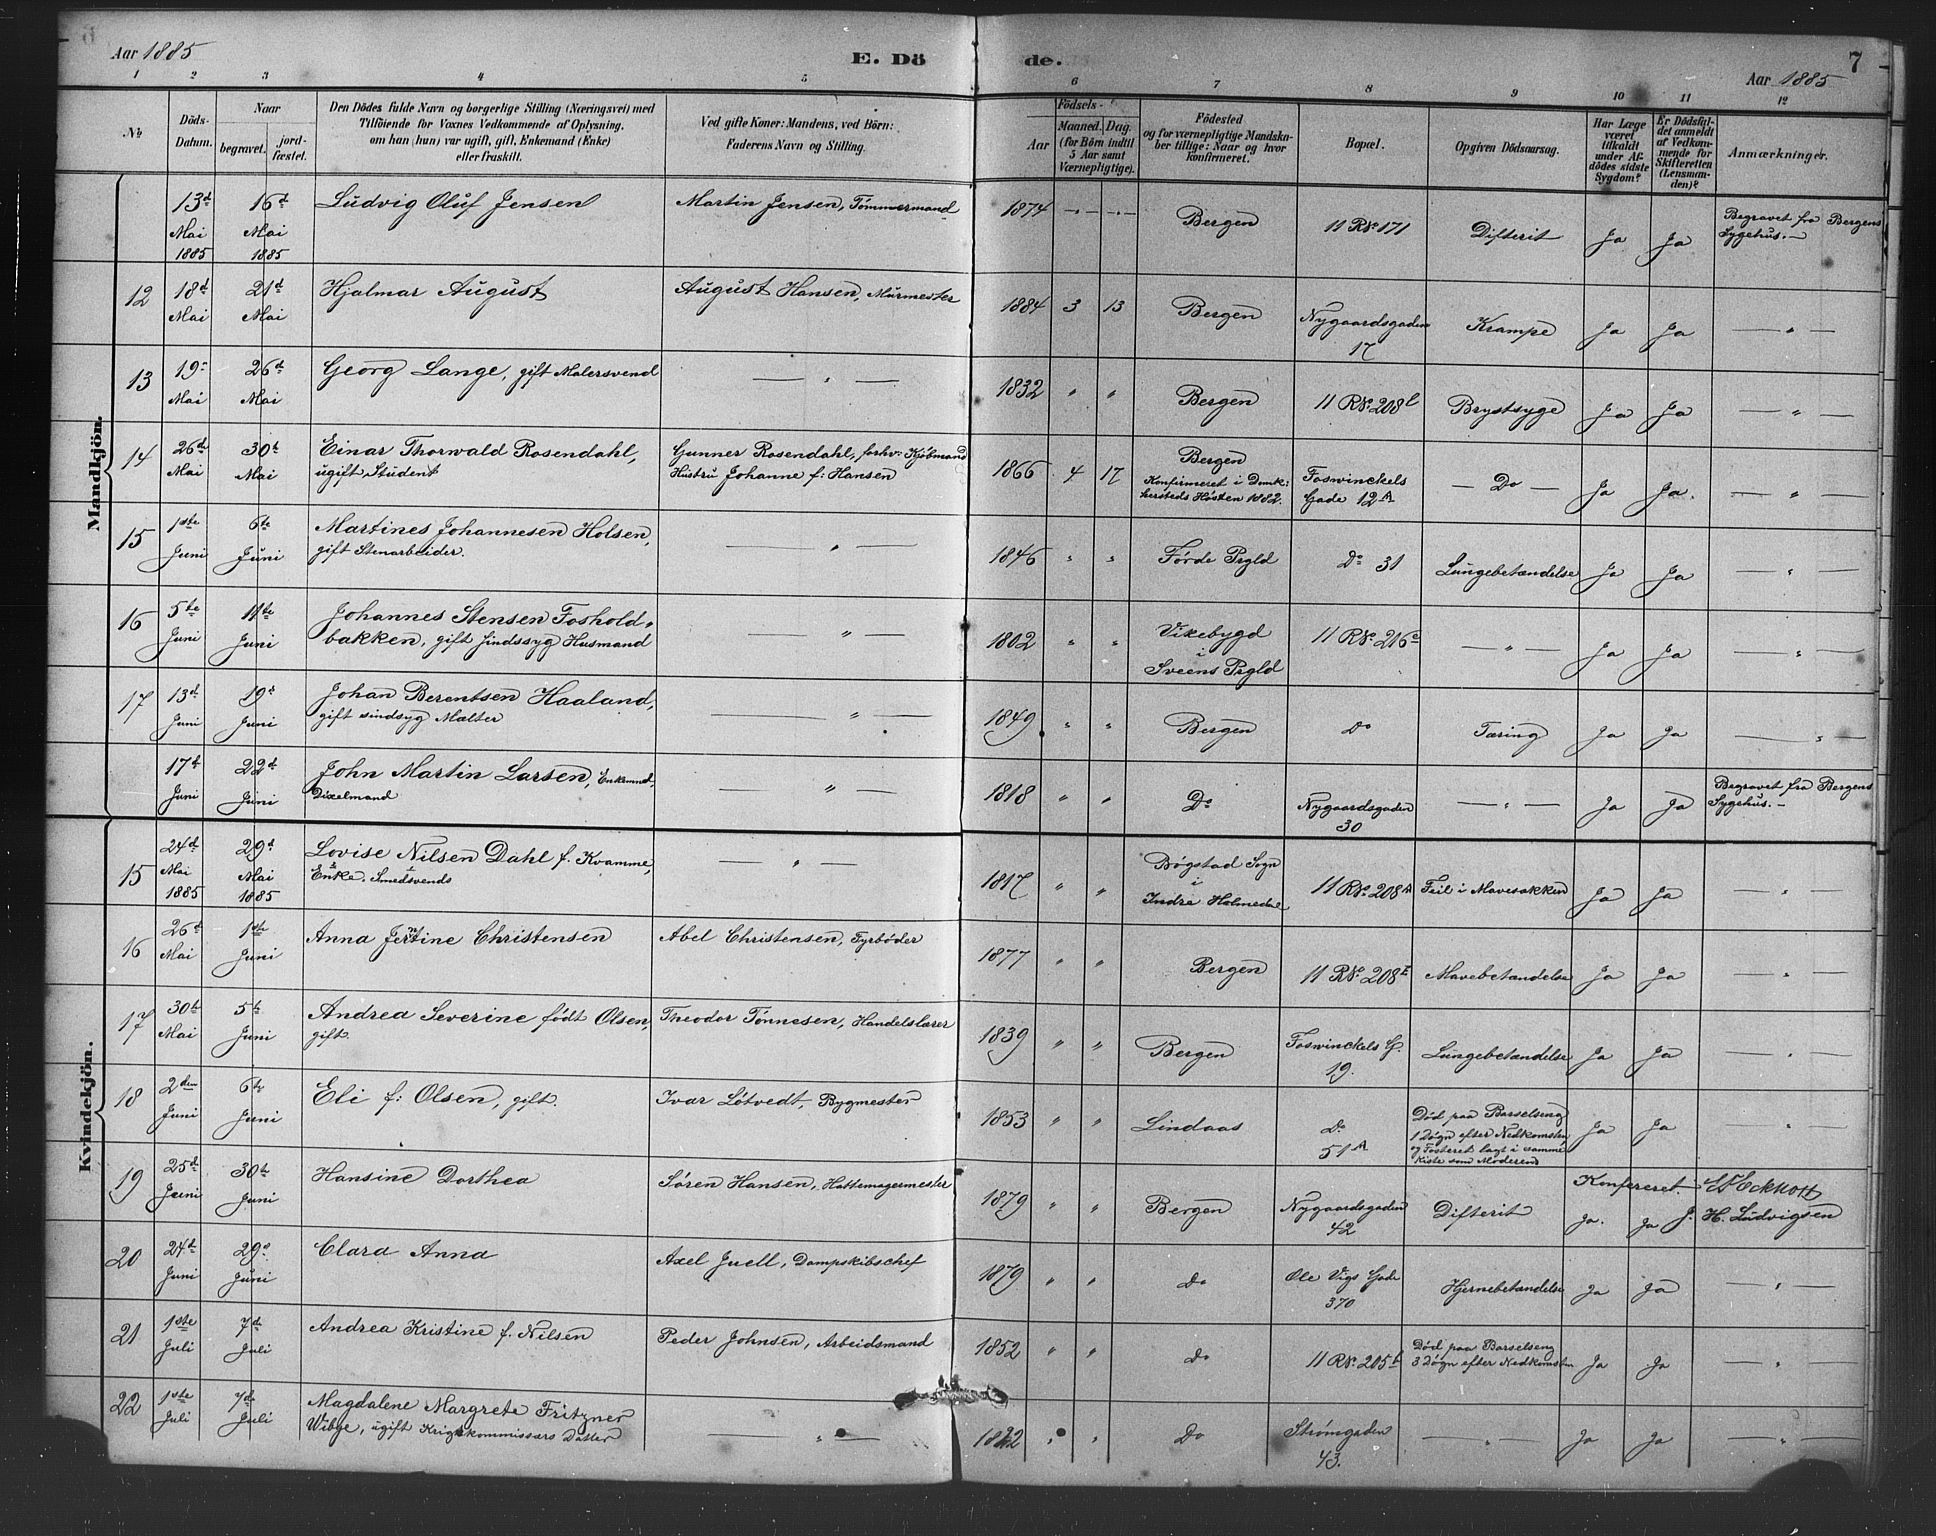 Aar 1885
E. Dö de.
7
Aar 1885
1 2 3 4 5 6 7 8 9 10 11 12
№
Döds-Datum.
Naar begravet. jordfæstet.
Den Dödes fulde Navn og borgerlige Stilling (Næringsvei) med Tilföiende for Voxnes Vedkommende af Oplysning, om han (hun) var ugift, gift, Enkemand (Enke) eller fraskilt.
Ved gifte Koner: Mandens, ved Börn: Faderens Navn og Stilling.
Födsels- Aar Maaned. Dag. (for Börn indtil 5 Aar samt Værnepligtige).
Födested og for værnepligtige Mandskaber tillige: Naar og hvor konfirmeret.
Bopæl.
Opgiven Dödsaarsag.
Har Læge været tilkaldt under Afdödes sidste Sygdom?
Er Dödsfaldet anmeldt af Vedkommende for Skifteretten (Lensmanden)?
Anmærkninger.
Mandkjön.
13d Mai 1885 16d Mai 1885 Ludvig Oluf Jensen Martin Jensen, Tømmermand 1874 — — Bergen 11 R№ 171 Difterit Ja Ja Begravet fra Bergens Sygehus. —
12 18d Mai 21d Mai Hjalmar August August Hansen, Murmester 1884 3 13 Bergen Nygaardsgaden 17 Krampe Ja Ja — " —
13 19 Mai 26d Mai Georg Lange, gift Malersvend — " — 1832 " " Bergen 11 R№ 208 Brystsyge Ja Ja — " —
14 26d Mai 30t Mai Einar Thorwald Rosendahl, ugift Student Gunner Rosendahl, forhv: Kjøbmand Hustru Johanne f: Hansen 1866 4 17 Bergen Konfirmeret i Domk: Høsten 1882. Foswinckels Gade 12 A — Do — Ja Ja. — " —
15 1ste Juni 6te Juni Martines Johannesen Holsen, gift Stenarbeider. — " — 1846 " " Førde Prgld Do 31 Lungebetændelse Ja Ja — " —
16 5te Juni 11te Juni Johannes Stensen Foshold-bakken, gift sindssyg Husmand — " — 1802 " " Vikebygd i Sveens Prgld 11 R№ 216 — " — Ja Ja — " —
17 13d Juni 19d Juni Johan Berentsen Haaland, gift sindsyg Mælter — " — 1849 " " Bergen Do Tæring Ja Ja — " —
17t Juni 22d Juni John Martin Larsen, Enkemnd, Dixelmand — " — 1818 " " Do Nygaardsgaden 30 — " — Ja Ja Begravet fra Bergens Sygehus. —
Kvindekjön.
15 24d Mai 1885 29d Mai 1885 Lovise Nilsen Dahl f. Kvamme, Enke. Smedsvends — " — 1817 " " Bøgstad Sogn i Indre Holmedal 11 R№ 208 A Feil i Mavesækken Ja Ja — " —
16 26d Mai 1ste Juni Anna Christensen Abel Christensen, Fyrbøder 1877 " " Bergen 11 R№ 208 Mavebetændelse Ja Ja — " —
17 30te Mai 5te Juni Andrea Severine født Olsen, gift. Theodor Tønnesen, Handelslærer 1839 " " Bergen Foswinckels G. 19. Lungebetændelse Ja Ja — " —
18 2den Juni 6te Juni Eli f: Olsen, gift. Ivar Løtvedt, Bygmester 1853 " " Lindaas Do 51 A Død paa Barselseng 1 Døgn efter Nedkomsten, og Fosteret lagt i samme Kiste som Moderens Ja Ja — " —
19 25d Juni 30te Juni Hansine Dorthea Søren Hansen, Hattemagermester 1879 " " Bergen Nygaardsgaden 42 Difterit Konfereret. Ja. Ja J. H. Ludvigsen
20 24de Juni 29 Juni Clara Anna Axel Juell, Dampskibschef 1879 " " Do Ole Vigs Gade 370 Hjernebetændelse Ja Ja — " —
21 1ste Juli 7de Juli Andrea Kristine f. Nilsen Peder Johnsen, Arbeidsmand 1852 " " Do 11 R№ 205 Død paa Barselseng 3 Døgn efter Nedkomsten Ja Ja — " —
22 1ste Juli 7de Juli Magdalene Margrete Fritzner Wibye, ugift Krigskommissærs Datter — " — 1822 " " Do Strømgaden 43. — " — Ja Ja — " —